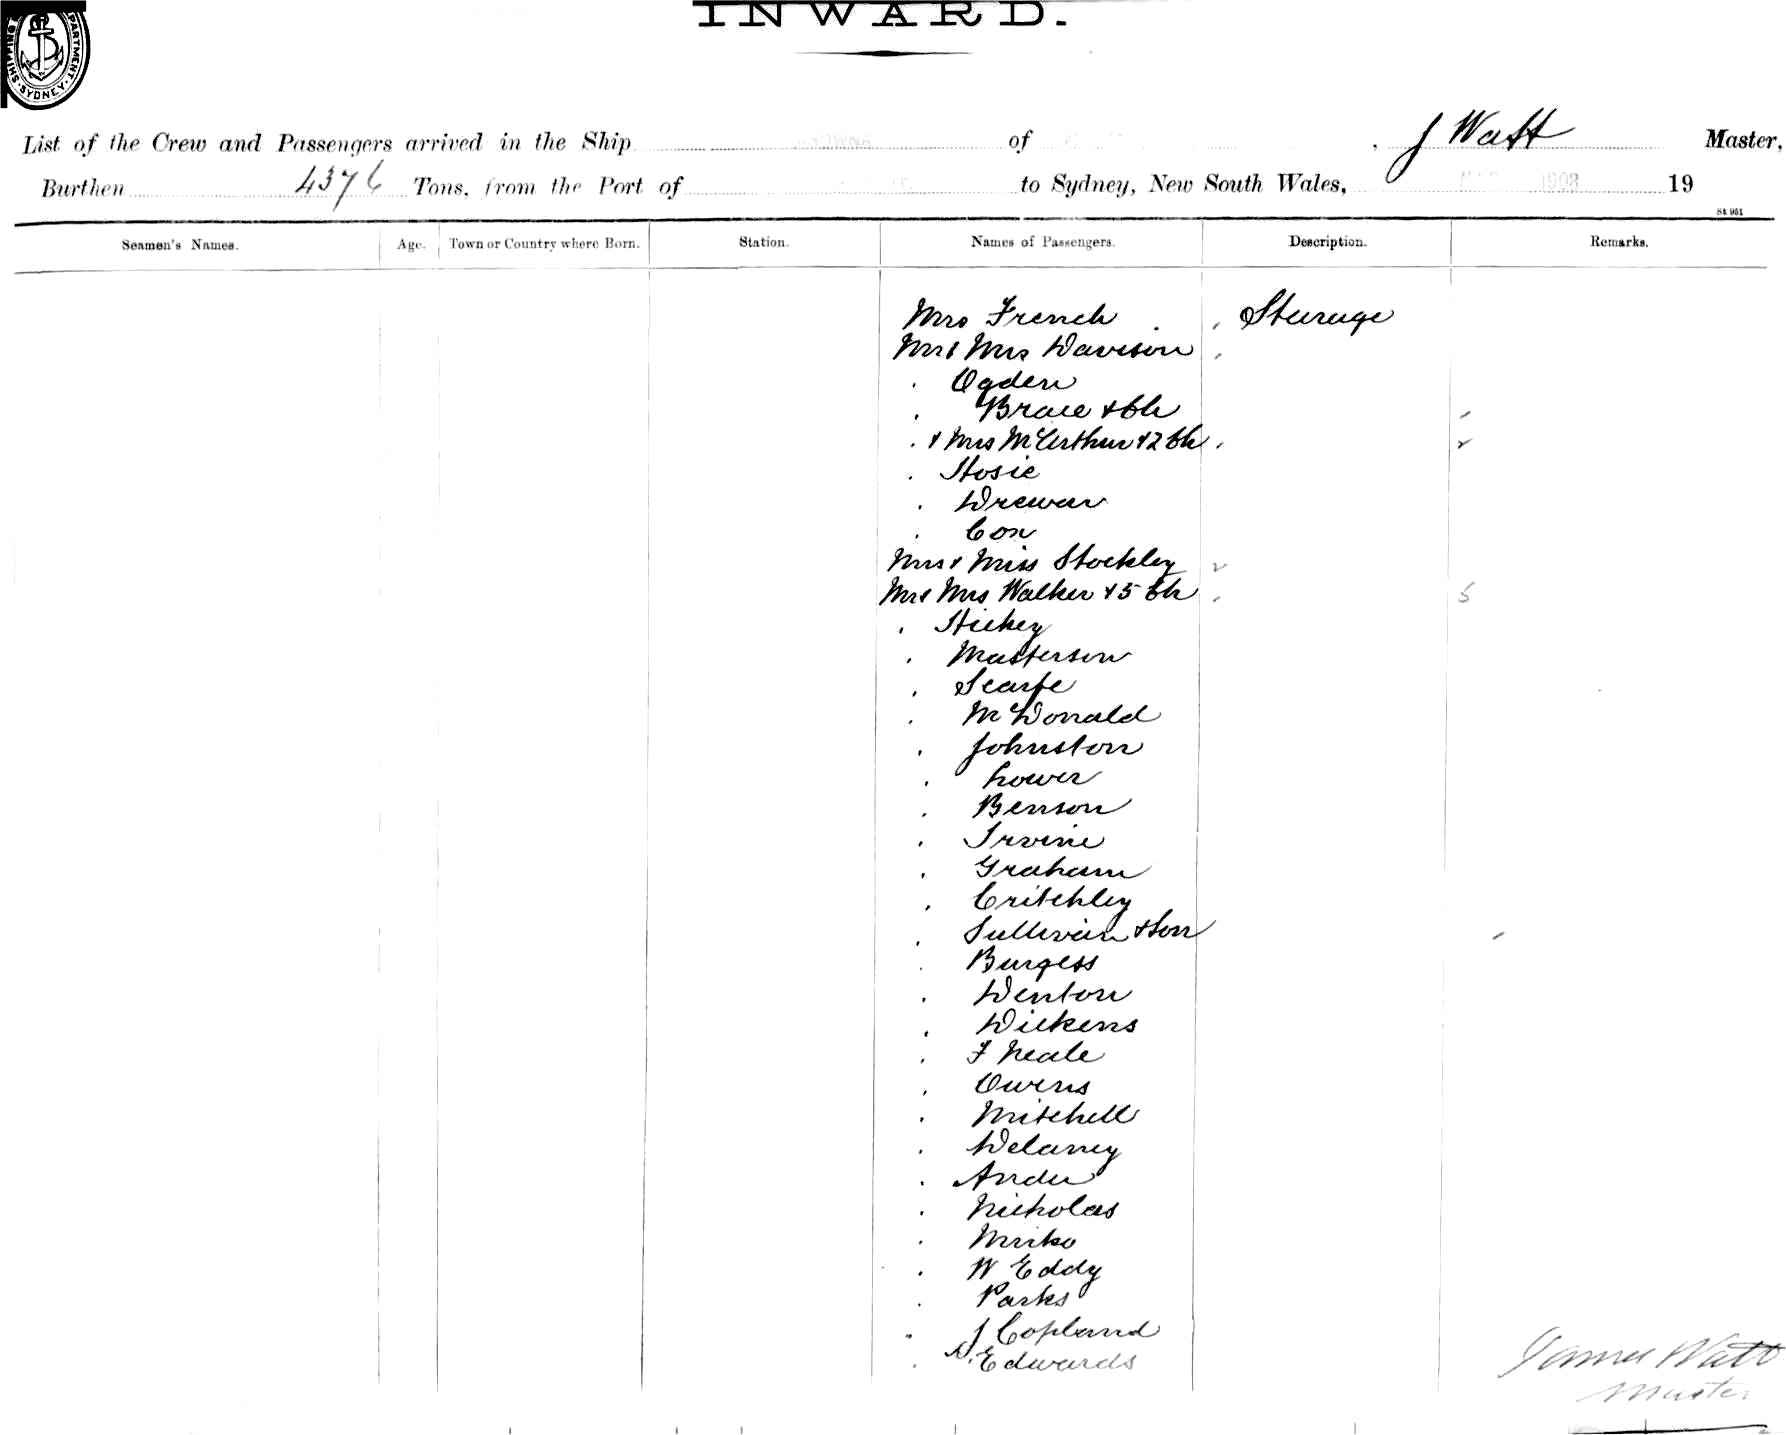 INWARD.
SHIPPING DEPARTMENT. SYDNEY.
List of the Crew and Passengers arrived in the Ship of , J Watt Master,
Burthen 4376 Tons, from the Port of to Sydney, New South Wales, 1903 19
Seamen's Names. Age. Town or Country where Born. Station. Names of Passengers. Description. Remarks.
Mrs French Steerage
Mr & Mrs Davison
Ogden
Brace & Ch
& Mrs McArthur & 2 Ch
Hosie
Drewer
Cox
Mrs & Miss Stockley
Mr & Mrs Walker & 5 Ch 5
Hickey
Masterson
Scarfe
McDonald
Johnston
Lower
Benson
Irvine
Graham
Critchley
Sullivan & Son
Burgess
Denton
Dickens
F Neale
Owens
Mitchell
Delaney
Nicholas
W Eddy
Parks
J Copland
Edwards
James Watt
Master